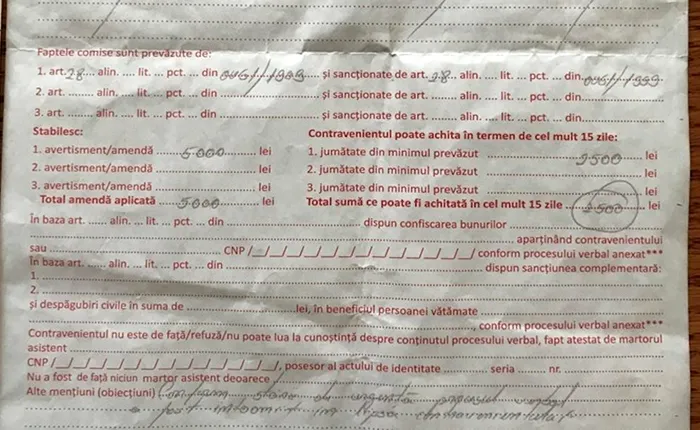 Faptele comise sunt prevăzute de:
1. art.28.... alin. .... lit. ... pct. ... din OUG/1/1999.... și sancționate de art. 28.. alin. .... lit. ... pct. ... din OUG/1/1999
2. art. ........ alin. .... lit. ... pct. ... din .................... și sancționate de art. ....... alin. .... lit. ... pct. ... din ....................
3. art. ........ alin. .... lit. ... pct. ... din .................... și sancționate de art. ....... alin. .... lit. ... pct. ... din ....................
Stabilesc: Contravenientul poate achita în termen de cel mult 15 zile:
1. avertisment/amendă ....5000............ lei 1. jumătate din minimul prevăzut ....................2500........ lei
2. avertisment/amendă ........................ lei 2. jumătate din minimul prevăzut .................................... lei
3. avertisment/amendă ........................ lei 3. jumătate din minimul prevăzut .................................... lei
Total amendă aplicată ....5000............ lei Total sumă ce poate fi achitată în cel mult 15 zile ....2500.... lei
În baza art. ...... alin. ... lit. ... pct. ... din .............................. dispun confiscarea bunurilor ..............................
.................................................. aparținând contravenientului
sau .............................. CNP /_/_/_/_/_/_/_/_/_/_/_/_/_/ conform procesului verbal anexat***
În baza art. ...... alin. ... lit. ... pct. ... din .............................. dispun sancțiunea complementară:
1. ..................................................
2. ..................................................
și despăgubiri civile în suma de .................... lei, în beneficiul persoanei vătămate ....................
.................................................. conform procesului verbal anexat***
Contravenientul nu este de față/refuză/nu poate lua la cunoștință despre conținutul procesului verbal, fapt atestat de martorul
asistent ..................................................
CNP /_/_/_/_/_/_/_/_/_/_/_/_/_/, posesor al actului de identitate .................... seria ........ nr. ....................
Nu a fost de față niciun martor asistent deoarece
Alte mențiuni (obiecțiuni) conform stare de urgență procesul verbal
a fost întocmit în lipsa contravenientului